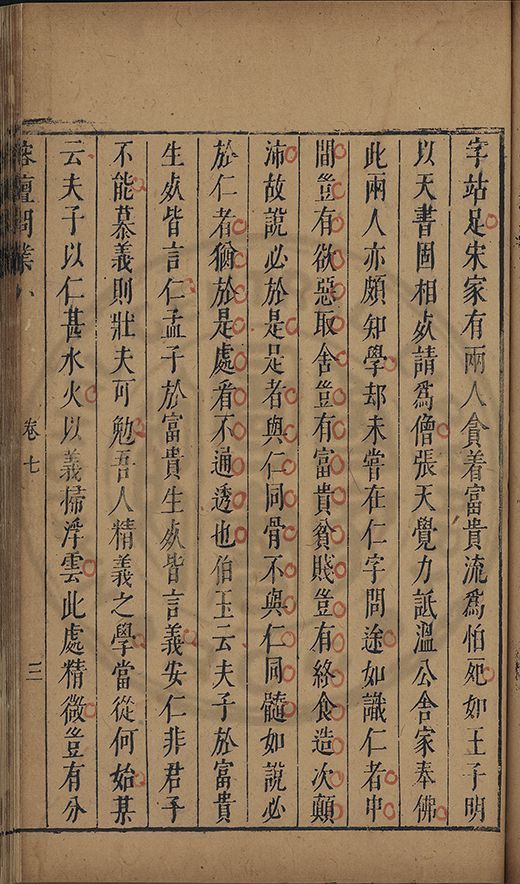 字站足宋家有兩人貪着富貴流爲怕死如王子明
以天書固相處請爲僧張天覺力詆溫公舍家奉佛
此兩人亦頗知學却未嘗在仁字問途如識仁者中
間豈有欲惡取舍豈有富貴貧賤豈有終食造次顛
沛故說必於是足者與仁同骨不與仁同髓如說必
於仁者猶於是處看不通透也伯玉云夫子於富貴
生處皆言仁孟子於富貴生處皆言義安仁非君子
不能慕義則壯夫可勉吾人精義之學當從何始某
云夫子以仁甚水火以義掃浮雲此處精微豈有分
榕壇問業
卷七
三